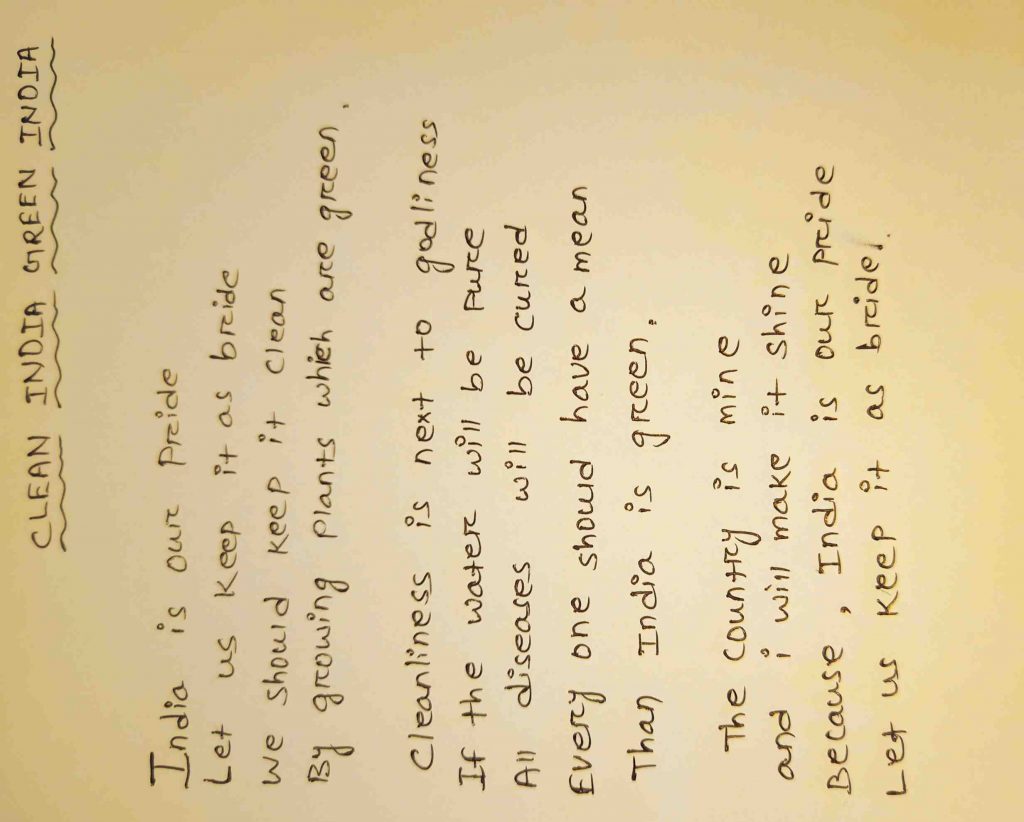 CLEAN INDIA GREEN INDIA
India is our Pride
Let us keep it as bride
We should keep it clean
By growing plants which are green.
Cleanliness is next to godliness
If the water will be pure
All diseases will be cured
Every one should have a mean
Than India is green.
The country is mine
and i will make it shine
Because, India is our pride
Let us keep it as bride!.